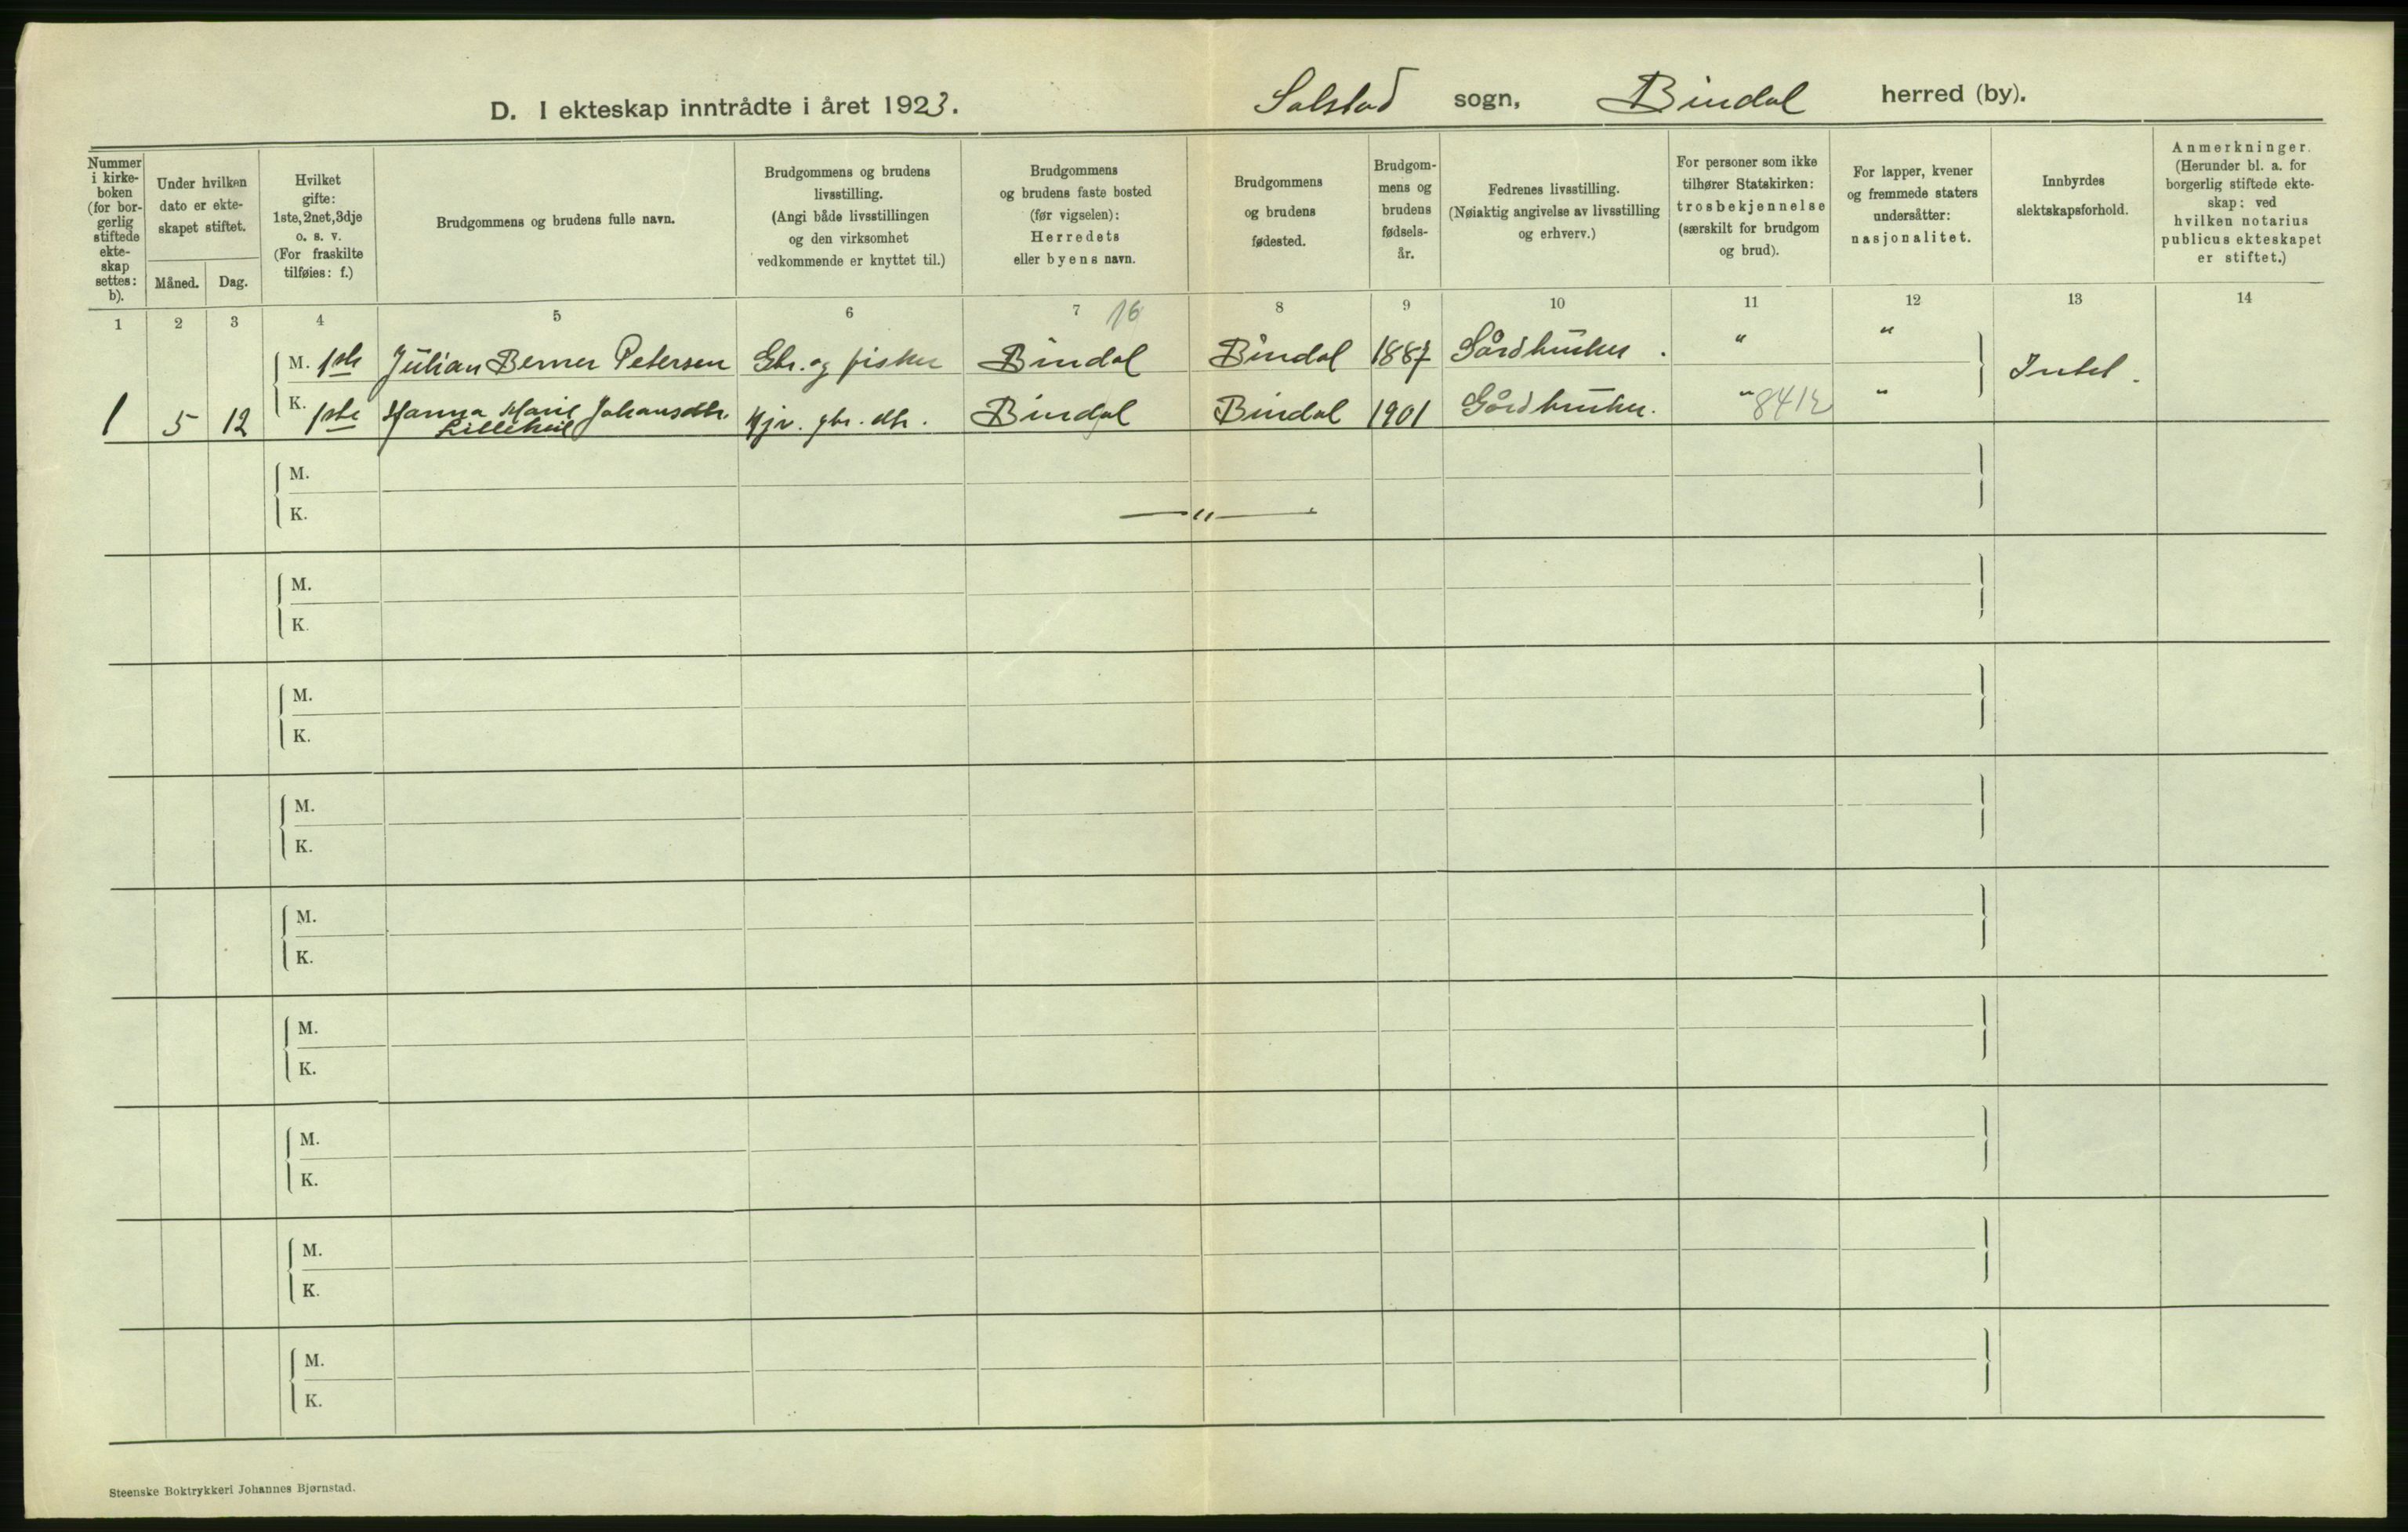 D. I ekteskap inntrådte i året 1923. Solstad sogn, Bindal herred (by).
Nummer
i kirke-
boken
(for bor-
gerlig
stiftede
ekte-
skap
settes:
b).
Under hvilken
dato er ekte-
skapet stiftet.
Måned. Dag.
Hvilket
gifte:
1ste, 2net, 3dje
o. s. v.
(For fraskilte
tilføies: f.)
Brudgommens og brudens fulle navn.
Brudgommens og brudens
livsstilling.
(Angi både livsstillingen
og den virksomhet
vedkommende er knyttet til.)
Brudgommens
og brudens faste bosted
(før vigselen):
Herredets
eller byens navn.
Brudgommens
og brudens
fødested.
Brudgom-
mens og
brudens
fødsels-
år.
Fedrenes livsstilling.
(Nøiaktig angivelse av livsstilling
og erhverv.)
For personer som ikke
tilhører Statskirken:
trosbekjennelse
(særskilt for brudgom
og brud).
For lapper, kvener
og fremmede staters
undersåtter:
nasjonalitet.
Innbyrdes
slektskapsforhold.
Anmerkninger.
(Herunder bl. a. for
borgerlig stiftede ekte-
skap: ved
hvilken notarius
publicus ekteskapet
er stiftet.)
1 2 3 4 5 6 7 16 8 9 10 11 12 13 14
M. 1ste Julian Berner Petersen Gbr. og fisker Bindal Bindal 1887 Gårdbruker. " "
Intet.
1 5 12 K. 1ste Hanna Marie Johansdtr. Hjv. gbr. dtr. Bindal Bindal 1901 Gårdbruker. " 8412 "
M.
K. —"—
M.
K.
M.
K.
M.
K.
M.
K.
M.
K.
M.
K.
M.
K.
M.
K.
Steenske Boktrykkeri Johannes Bjørnstad.